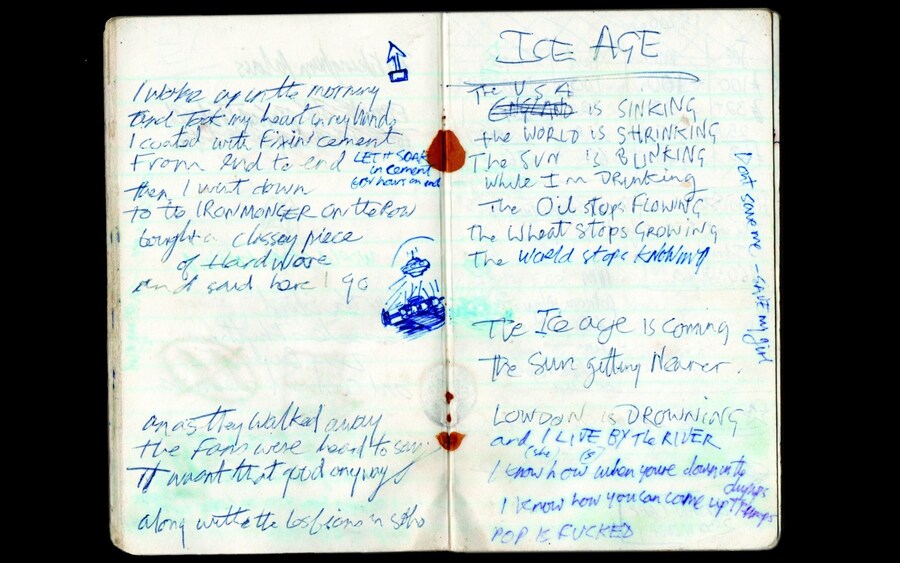 I woke up in the morning
And took my heart in my hands
I coated with Fixin' cement
From end to end
LET IT SOAK
in cement
for hours on end
then I went down
to the IRONMONGER on the Row
bought a classey piece
of Hardware
and said here I go
an as they walked away
the Fans were heard to say
It wasnt that good anyway
along with the lesbians in soho
ICE AGE
The USA
ENGLAND IS SINKING
the WORLD IS SHRINKING
The SUN IS BLINKING
While I'm DRINKING
The Oil stops FLOWING
The Wheat stops GROWING
The World stops KNOWING
Dont save me - SAVE my girl
The Ice age is coming
The Sun getting Nearer.
LONDON is DROWNING
and I LIVE BY the RIVER
(she) (is)
I know how when youre down in the dumps
I know how you can come up trumps
POP IS FUCKED